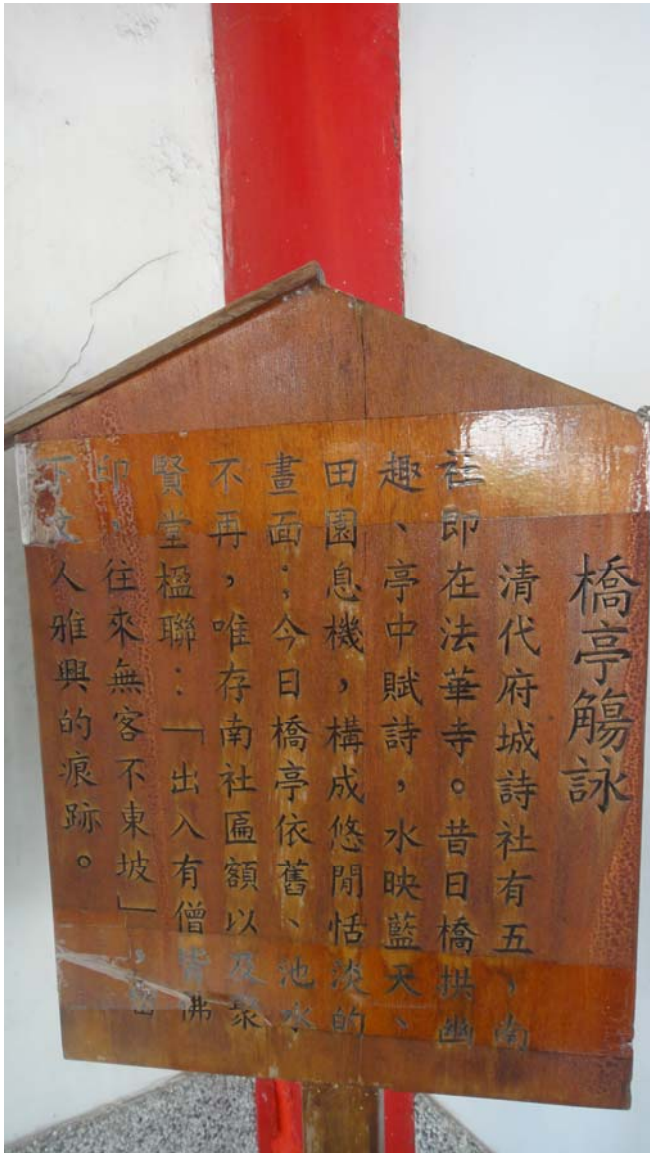 橋亭觴詠
清代府城詩社有五，南
社即在法華寺。昔日橋拱幽
趣、亭中賦詩，水映藍天、
田園息機，構成悠閒恬淡的
畫面；今日橋亭依舊、池水
不再，唯存南社匾額以及聚
賢堂楹聯：「出入有僧皆佛
印、往來無客不東坡」，留
下文人雅興的痕跡。